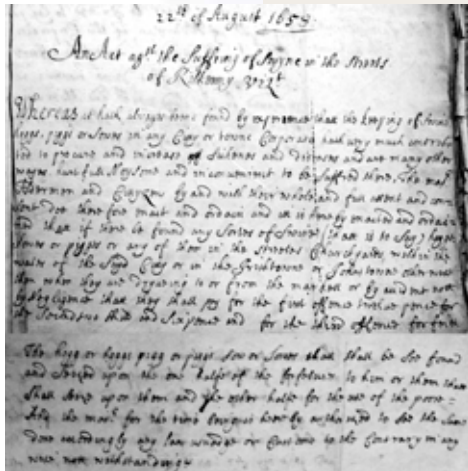 22th of August 1658
An Act agst the Suffering of Swyne in the streets
of Kilkenny vizt
Whereas it hath always beene found by experience that the keeping of Swine
hoggs, piggs or Sowes in any City or towne Corporate hath very much contribu
ted to procure and increase of Sicknes and diseases and are many other
wayes hurtfull Noysome and inconvenient to be suffred there, The mar
Aldermen and Citizens by and with their whole and full assent and con=
sent doe therefore enact and ordain and it is hereby enacted and ordain
ed that if there be found any Sortes of Swine (that is to Say) hoggs,
Sowes or piggs or any of them in the streetes Churchyards, within the
walls of the Said City or in the Irishtowne or Johns towne otherwise
then when they are dryveing to or from the markett or by and not
by Negligence that they shall pay for the first offence twelve pence for
the Second two shill and Sixpence and for the third offence for
The hogg or hoggs pigg or piggs Sow or Sowes that shall be soe found
and Seized upon the one halfe of the to him or them that
Shall Seize upon them and the other halfe for the use of the poore=
And the mar for the time being is hereby authorized to see the Same
done accordingly any law usadge or Custome to the Contrary in any
wise not withstanding